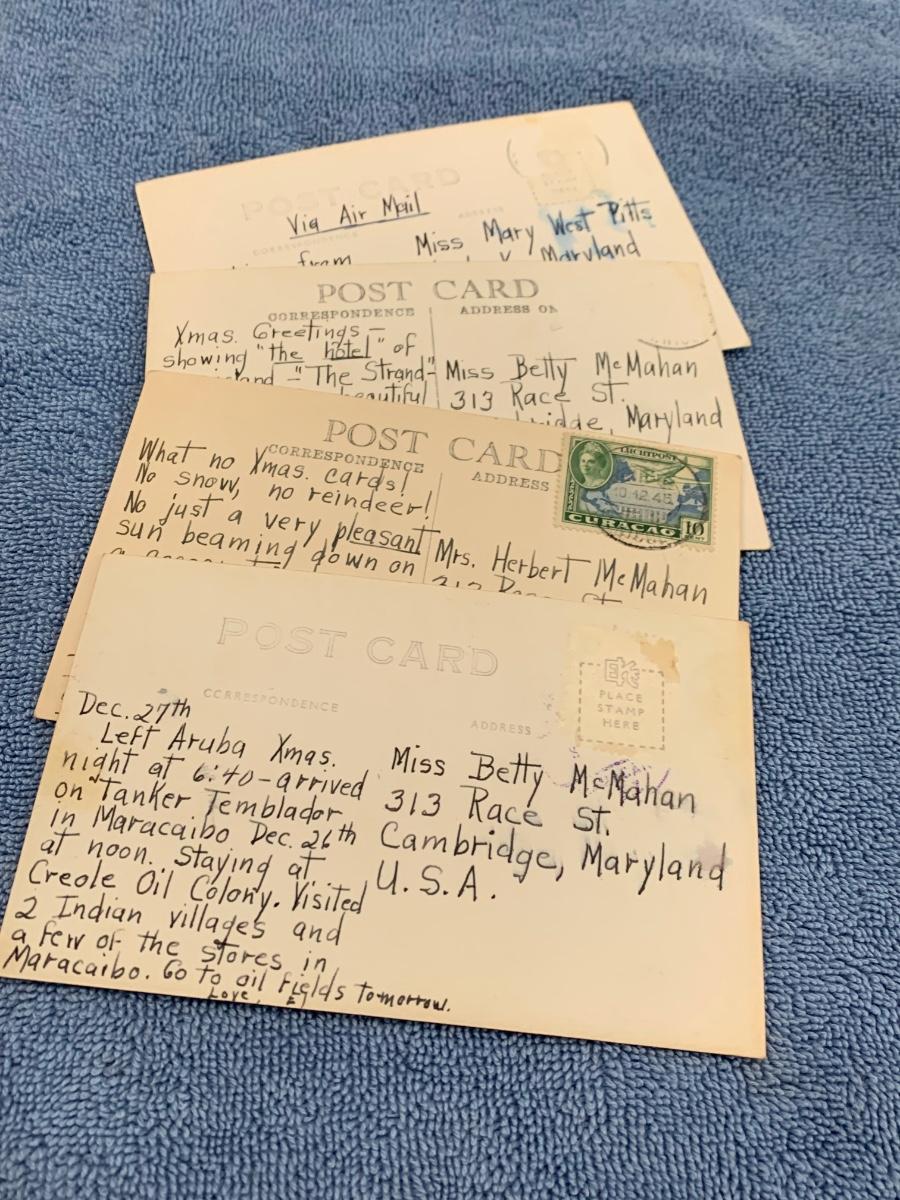 POST CARD
Via Air Mail
CORRESPONDENCE
ADDRESS
from
Miss Mary West Pitts
Maryland
POST CARD
CORRESPONDENCE
ADDRESS
Xmas. Greetings –
showing "the hotel" of
"The Strand"
beautiful
Miss Betty McMahan
313 Race St.
Maryland
POST CARD
CORRESPONDENCE
ADDRESS
What no Xmas. cards!
No snow, no reindeer!
No just a very pleasant
sun beaming down on
LUCHTPOST
10.12.45
CURACAO 10
Mrs. Herbert McMahan
POST CARD
CORRESPONDENCE
ADDRESS
EKC
PLACE
STAMP
HERE
Dec. 27th
Left Aruba Xmas.
night at 6:40 – arrived
on Tanker Temblador
in Maracaibo Dec. 26th
at noon. Staying at
Creole Oil Colony. Visited
2 Indian villages and
a few of the stores in
Maracaibo. Go to oil fields tomorrow.
Love,
Miss Betty McMahan
313 Race St.
Cambridge, Maryland
U.S.A.